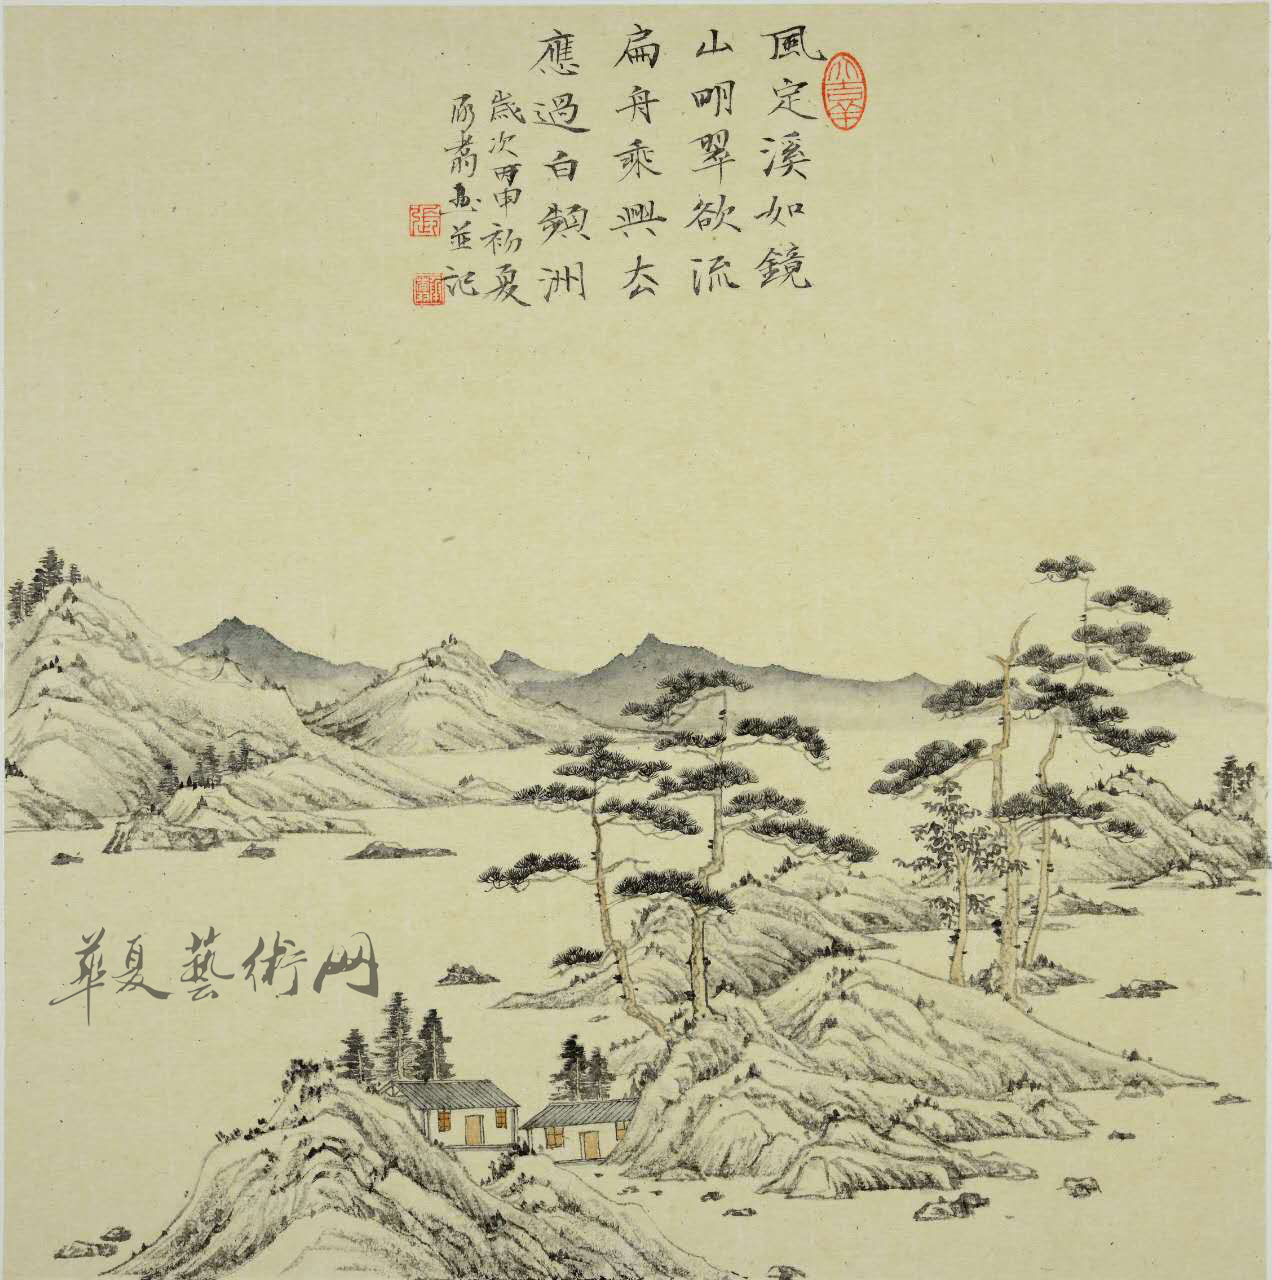 風定溪如鏡
山明翠欲流
扁舟乘興去
應過白蘋洲
歲次丙申初夏
承翥畫並記
張
華夏藝術网